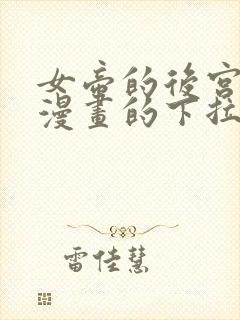 女帝的後宮
漫畫的下拉
雷佳慧